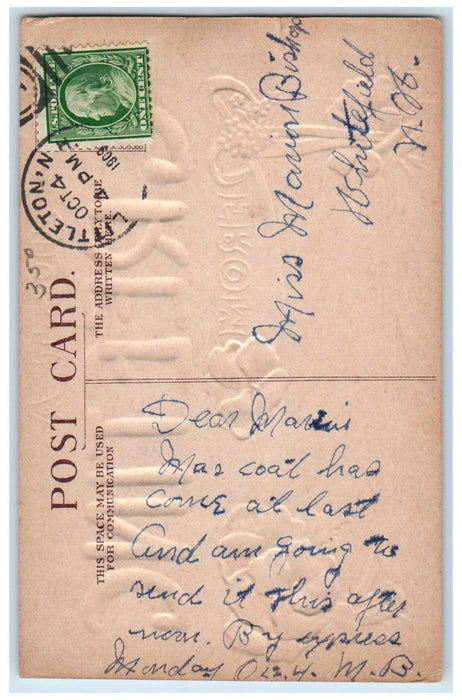 U.S. POSTAGE
ONE CENT
LITTLETON, N.
OCT 4
PM
1909
350
POST CARD.
THE ADDRESS ONLY TO BE
WRITTEN HERE.
Miss Marion Bishop
Whitefield
N. H.
THIS SPACE MAY BE USED
FOR COMMUNICATION
FROM
Dear Marion
Mas coat has
come at last
And am going to
send it this after
noon. By express
Monday Oct 4. M. B.